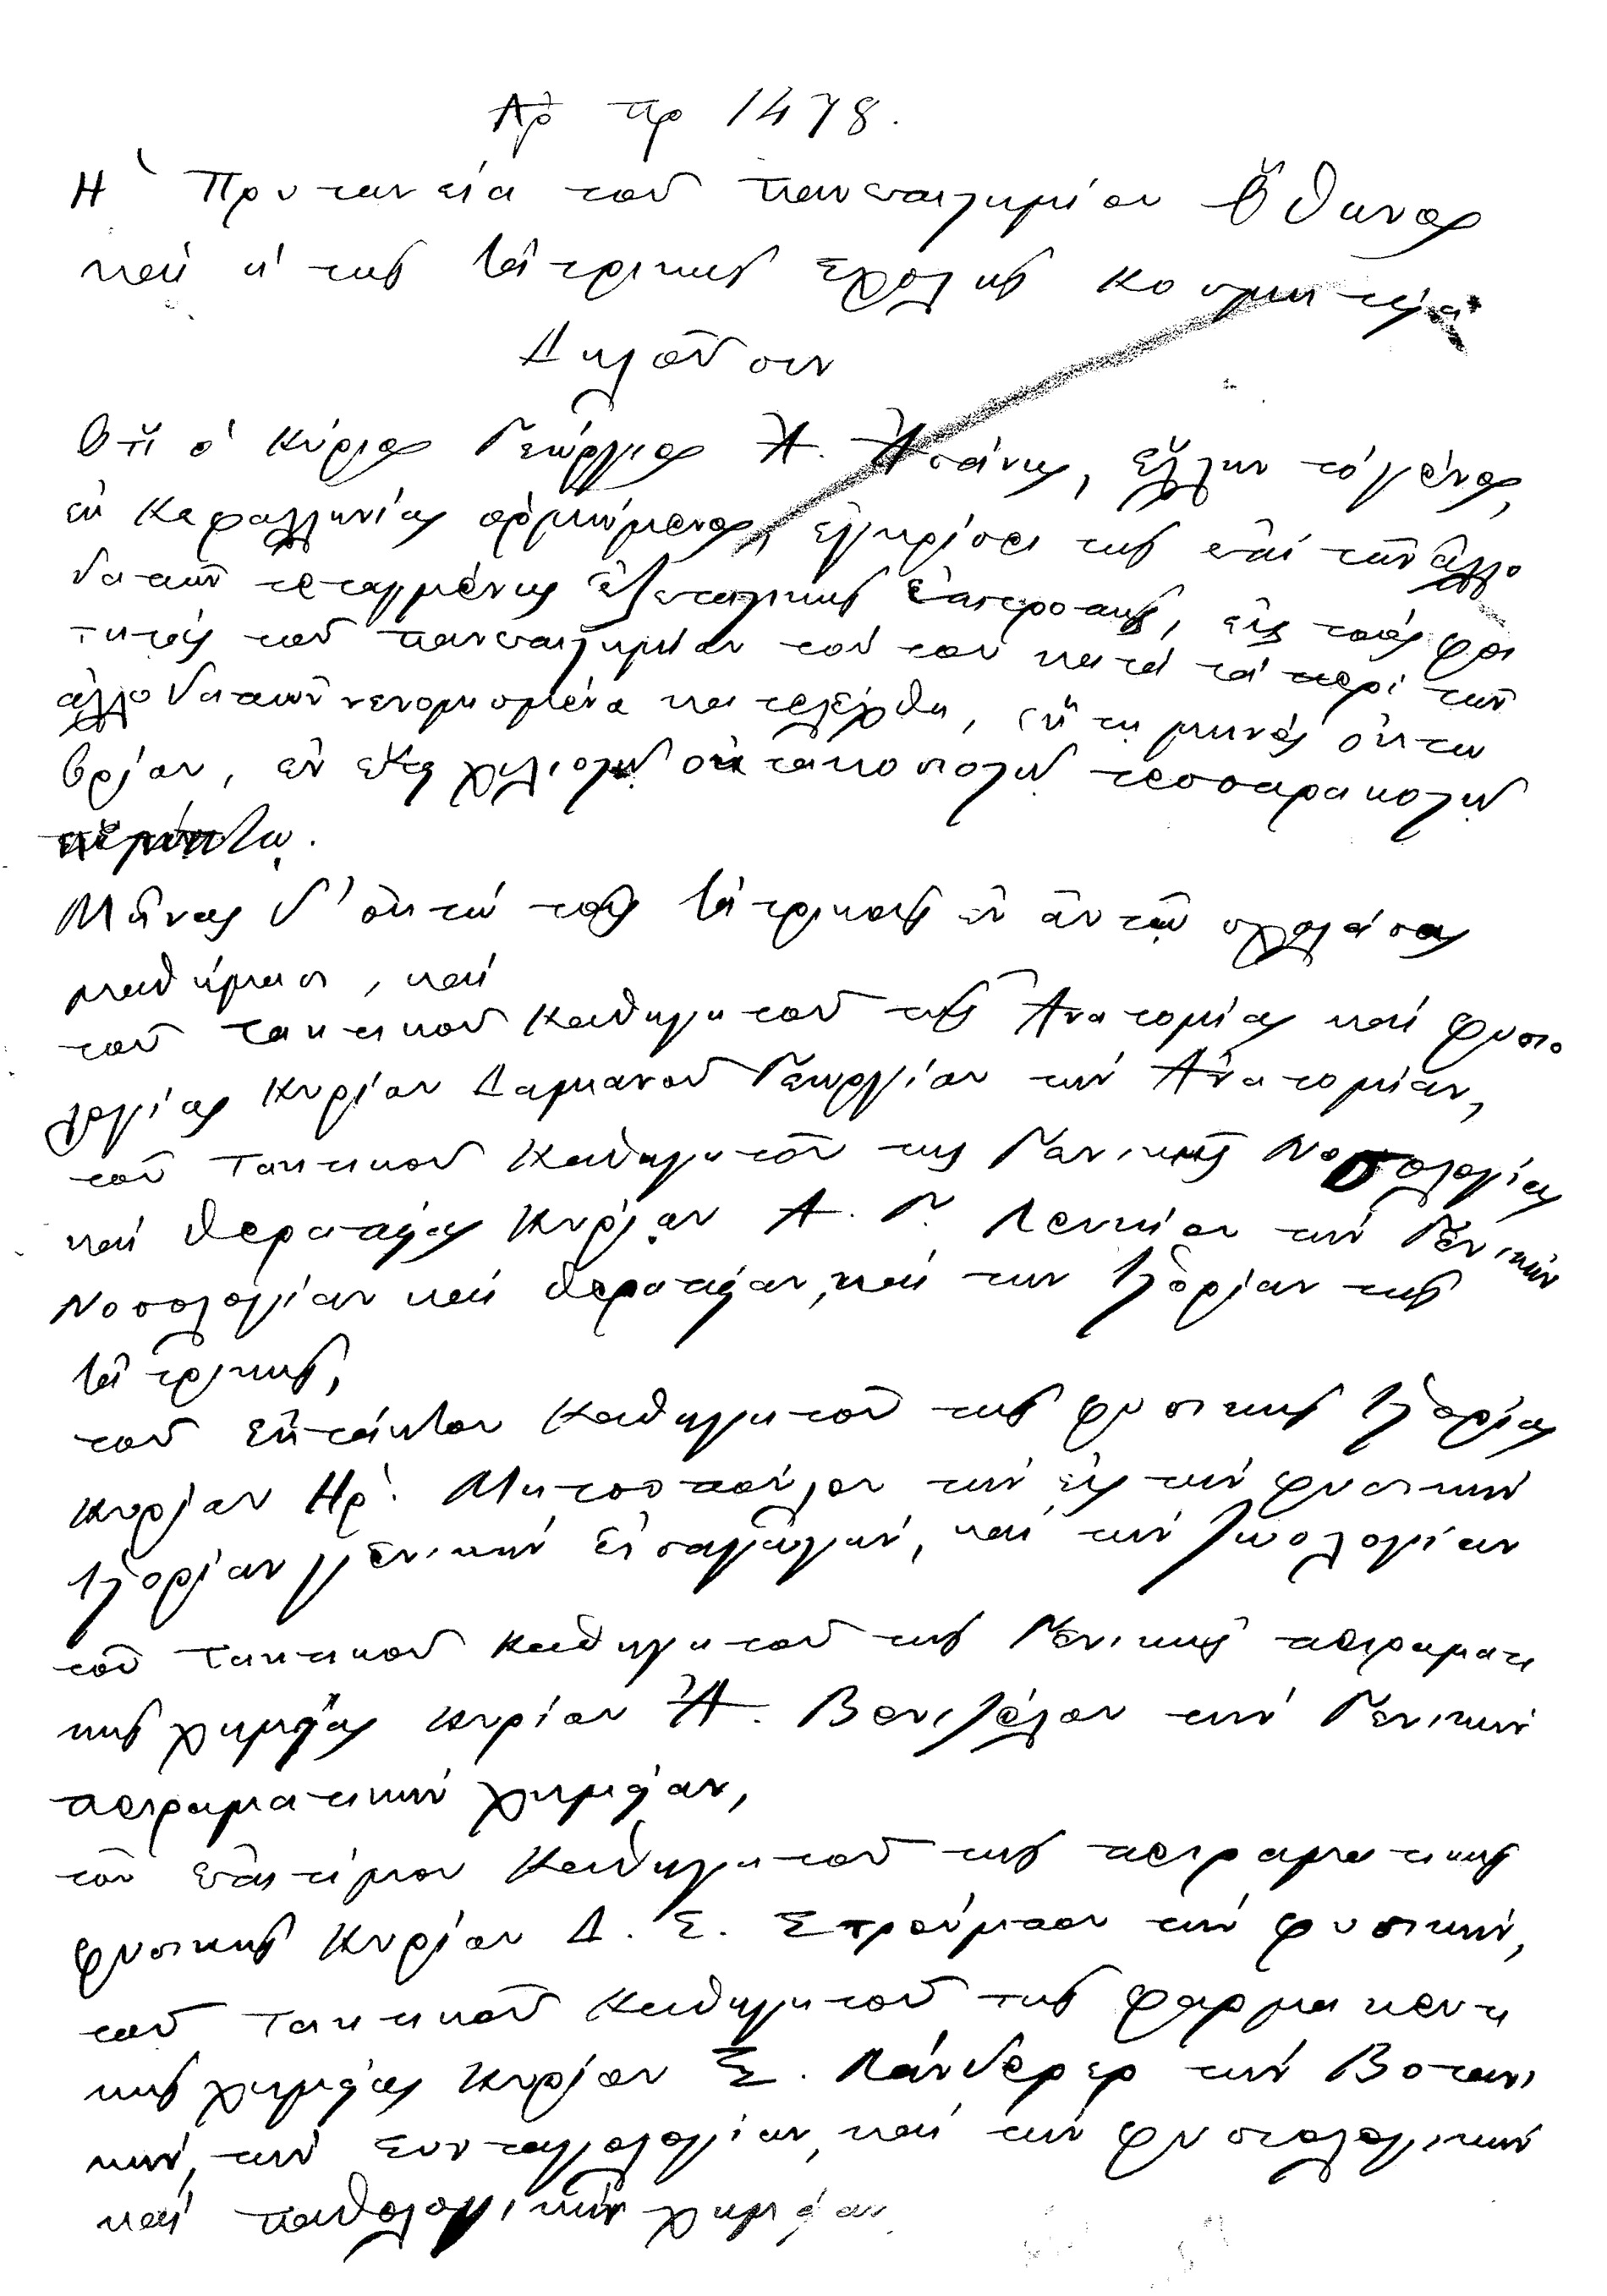 Αρ πρ 1478.
Η Πρυτανεία τοῦ πανεπιστημίου Ὄθωνος
καὶ ἡ τῆς Ἰατρικῆς Σχολῆς κοσμητεία
Δηλοῦσιν
Ὅτι ὁ Κύριος Γεώργιος Ἀ. , Ἕλλην τὸ γένος,
ἐκ Κεφαλληνίας ὁρμώμενος, ἐγκρίσει τῆς ἐπὶ τῶν ἀλλο
δαπῶν τεταγμένης ἐξεταστικῆς ἐπιτροπῆς, εἰς τοὺς φοι
τητὰς τοῦ πανεπιστημίου τούτου κατὰ τὰ περὶ τῶν
ἀλλοδαπῶν νενομισμένα κατελέχθη, μηνὸς ὀκτω
βρίου, ἐν ἔτει χιλιοστῷ ὀκτακοσιοστῷ τεσσαρακοστῷ
πέμπτῳ.
Μῆνας δ' ὀκτὼ τοῖς Ἰατρικοῖς ἐν αὐτῷ σχολάσας
μαθήμασι, καὶ
τοῦ τακτικοῦ Καθηγητοῦ τῆς Ἀνατομίας καὶ φυσιο
λογίας Κυρίου Δαμιανοῦ Γεωργίου τὴν Ἀνατομίαν,
τοῦ Τακτικοῦ Καθηγητοῦ τῆς Γενικῆς Νοσολογίας
καὶ θεραπείας Κυρίου Α. Γ. Λευκίου τὴν Γενικὴν
Νοσολογίαν καὶ θεραπείαν, καὶ τὴν Ἱστορίαν τῆς
Ἰατρικῆς,
τοῦ ἐκτάκτου Καθηγητοῦ τῆς φυσικῆς Ἱστορίας
Κυρίου Ηρ. Μητσοπούλου τὴν εἰς τὴν φυσικὴν
Ἱστορίαν γενικὴν εἰσαγωγὴν, καὶ τὴν ζωολογίαν
τοῦ Τακτικοῦ Καθηγητοῦ τῆς Γενικῆς πειραματι
κῆς χημείας κυρίου Ἀ. Βενιζέλου τὴν Γενικὴν
πειραματικὴν χημείαν,
τοῦ ἐπιτίμου Καθηγητοῦ τῆς πειραματικῆς
φυσικῆς Κυρίου Δ. Σ. Στρούμπου τὴν φυσικὴν,
τοῦ Τακτικοῦ Καθηγητοῦ τῆς φαρμακευτι
κῆς χημείας Κυρίου Ξ. Λάνδερερ τὴν Βοτανι
κὴν, τὴν Συνταγολογίαν, καὶ τὴν φυσιολογικὴν
καὶ παθολογικὴν χημείαν